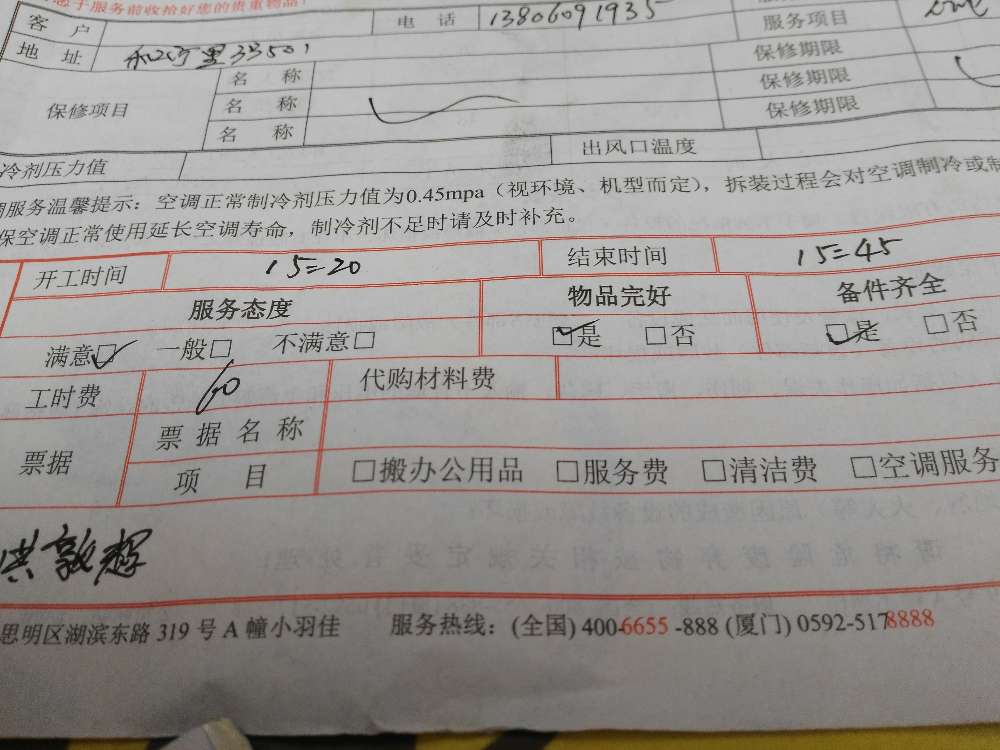 于服务前收拾好您的贵重物品
客 户 电 话 13806091935 服务项目
地 址 保修期限
保修项目 名 称 保修期限
名 称 保修期限
名 称
冷剂压力值 出风口温度
调服务温馨提示：空调正常制冷剂压力值为0.45mpa（视环境、机型而定），拆装过程会对空调制冷或制
保空调正常使用延长空调寿命，制冷剂不足时请及时补充。
开工时间 15=20 结束时间 15=45
服务态度 物品完好 备件齐全
满意☑ 一般□ 不满意□ ☑是 □否 ☑是 □否
工时费 60 代购材料费
票据 票 据 名 称
项 目 □搬办公用品 □服务费 □清洁费 □空调服务
洪敦辉
思明区湖滨东路 319 号 A 幢小羽佳 服务热线：(全国) 400-6655 -888 (厦门) 0592-5178888